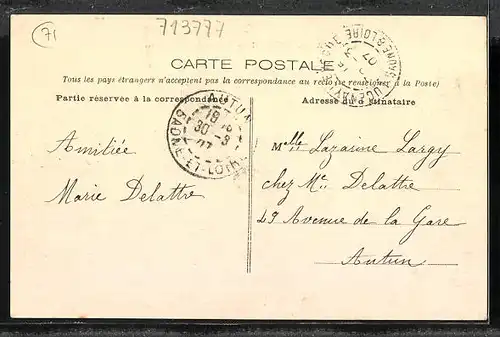 71
713777
CARTE POSTALE
Tous les pays étrangers n'acceptent pas la correspondance au recto (se renseigner à la Poste)
Partie réservée à la correspondance
Adresse du destinataire
AUTUN
30 -3
07
SAONE-ET-LOIRE
SAONE & LOIRE
Amitiée
Marie Delattre
Melle Lazarine Largy
chez Me Delattre
49 Avenue de la Gare
Autun